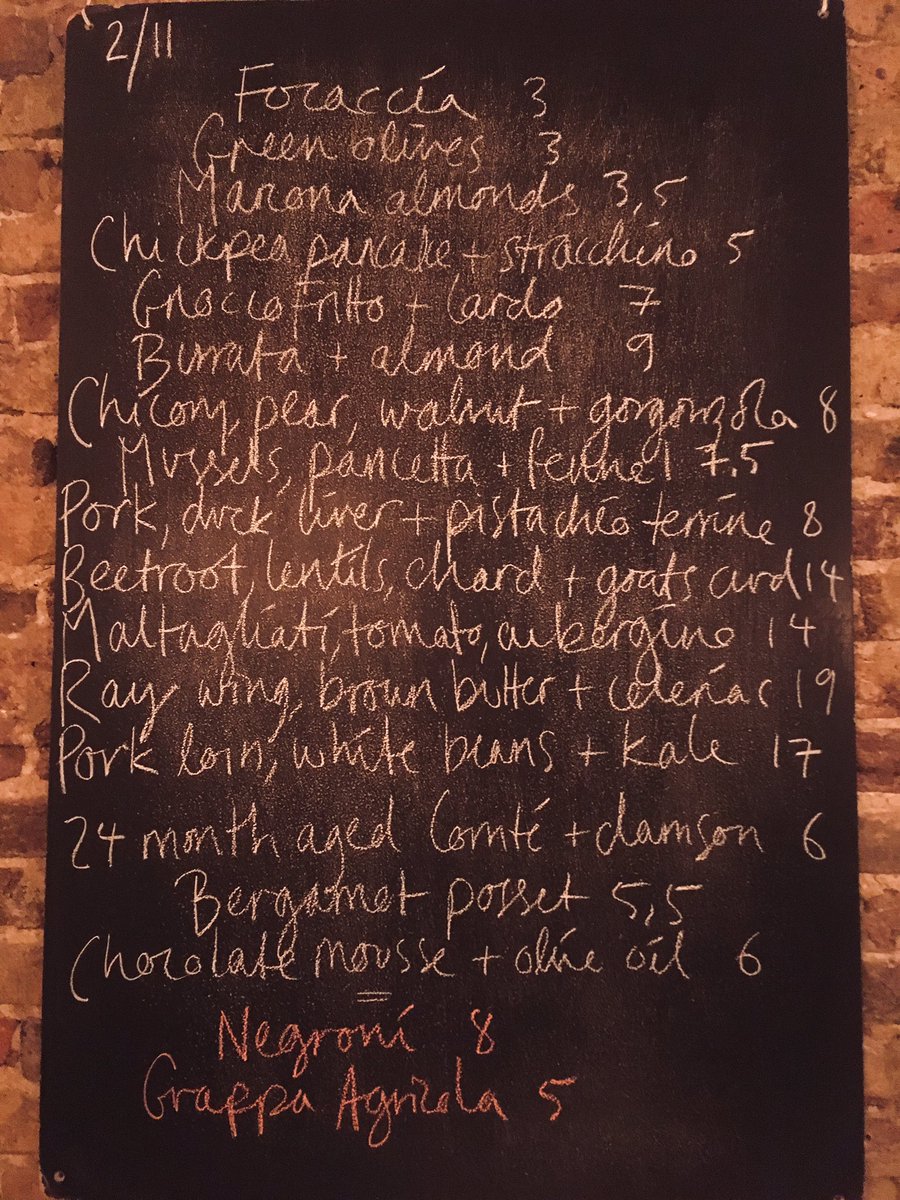 2/11
Focaccia 3
Green olives 3
Marcona almonds 3,5
Chickpea pancake + stracchino 5
Gnocco Fritto + Lardo 7
Burrata + almond 9
Chicory, pear, walnut + gorgonzola 8
Mussels, pancetta + fennel 7.5
Pork, duck liver + pistachio terrine 8
Beetroot, lentils, chard + goats curd 14
Maltagliati, tomato, aubergine 14
Ray wing, brown butter + celeriac 19
Pork loin, white beans + kale 17
24 month aged Comté + damson 6
Bergamot posset 5,5
Chocolate mousse + olive oil 6
Negroni 8
Grappa Agricola 5